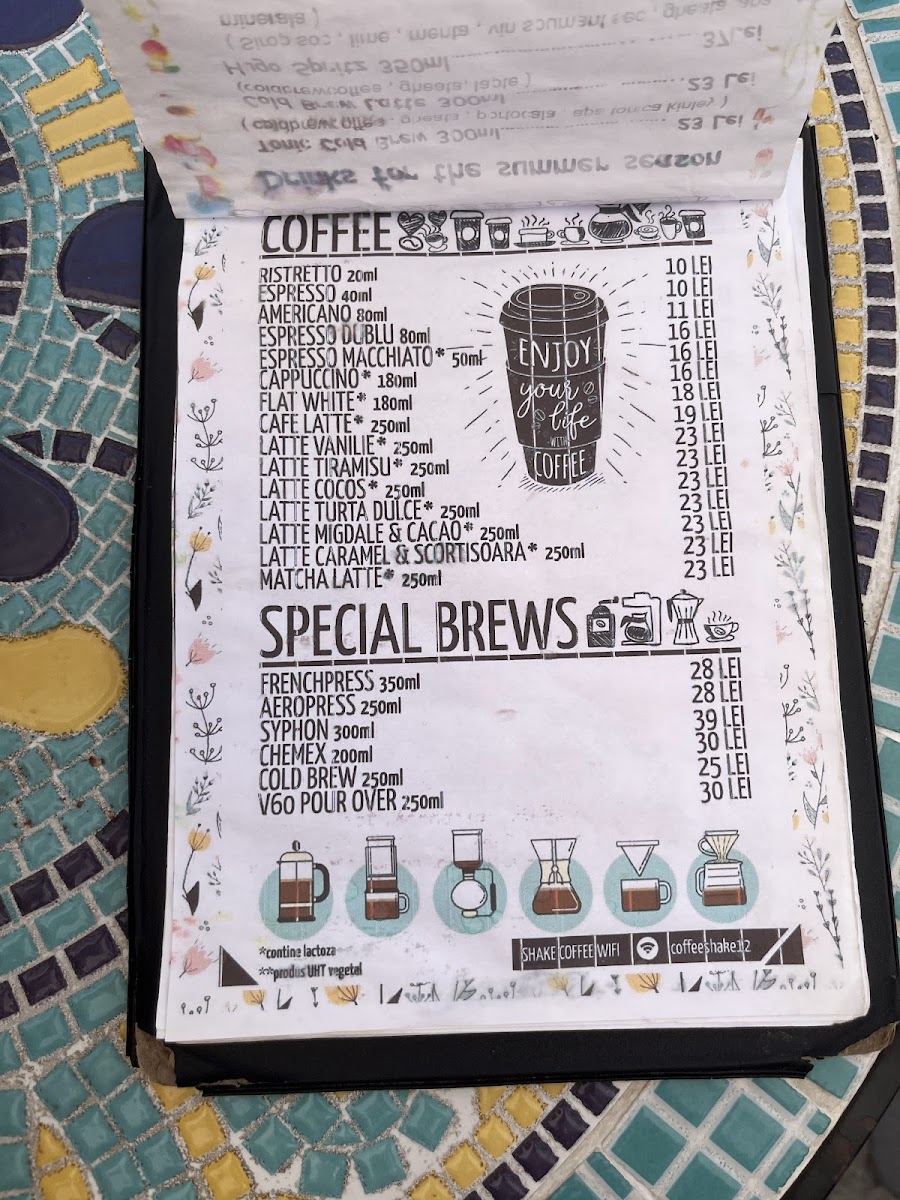 Drinks for the summer season
Tonic Cold Brew 300ml 23 Lei
(coldbrewcoffea, gheata, portocala apa tonica kinley)
Cold Brew Latte 300ml 23 Lei
(coldbrewcoffea, gheata, lapte)
Hugo Spritz 350ml 37Lei
(Sirop soc, lime, menta, vin spumant sec, gheata, apa
minerala)
COFFEE
RISTRETTO 20ml 10 LEI
ESPRESSO 40ml 10 LEI
AMERICANO 80ml 11 LEI
ESPRESSO DUBLU 80ml 16 LEI
ESPRESSO MACCHIATO* 50ml 16 LEI
CAPPUCCINO* 180ml 16 LEI
FLAT WHITE* 180ml 18 LEI
CAFE LATTE* 250ml 19 LEI
LATTE VANILIE* 250ml 23 LEI
LATTE TIRAMISU* 250ml 23 LEI
LATTE COCOS* 250ml 23 LEI
LATTE TURTA DULCE* 250ml 23 LEI
LATTE MIGDALE & CACAO* 250ml 23 LEI
LATTE CARAMEL & SCORTISOARA* 250ml 23 LEI
MATCHA LATTE* 250ml 23 LEI
ENJOY
your
life
WITH
COFFEE
SPECIAL BREWS
FRENCHPRESS 350ml 28 LEI
AEROPRESS 250ml 28 LEI
SYPHON 300ml 39 LEI
CHEMEX 200ml 30 LEI
COLD BREW 250ml 25 LEI
V60 POUR OVER 250ml 30 LEI
*contine lactoza
**produs UHT vegetal
SHAKE COFFEE WIFI coffeeshake12